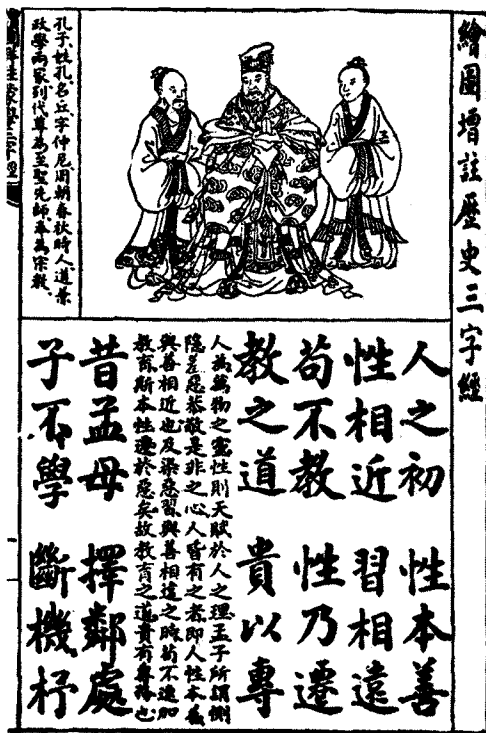 繪圖增註歷史三字經
孔子、姓孔、名丘、字仲尼、周朝春秋時人、道兼
政學兩家、列代尊為至聖先師、奉為宗教、
人之初 性本善
性相近 習相遠
苟不教 性乃遷
教之道 貴以專
人為萬物之靈性則天賦於人之理孟子所謂惻
隱羞惡恭敬是非之心人皆有之者即人性本善
與善相近也及染惡習與善相遠之時苟不速加
教育斯本性遷於惡矣故教育之道貴有專務也
昔孟母 擇鄰處
子不學 斷機杼